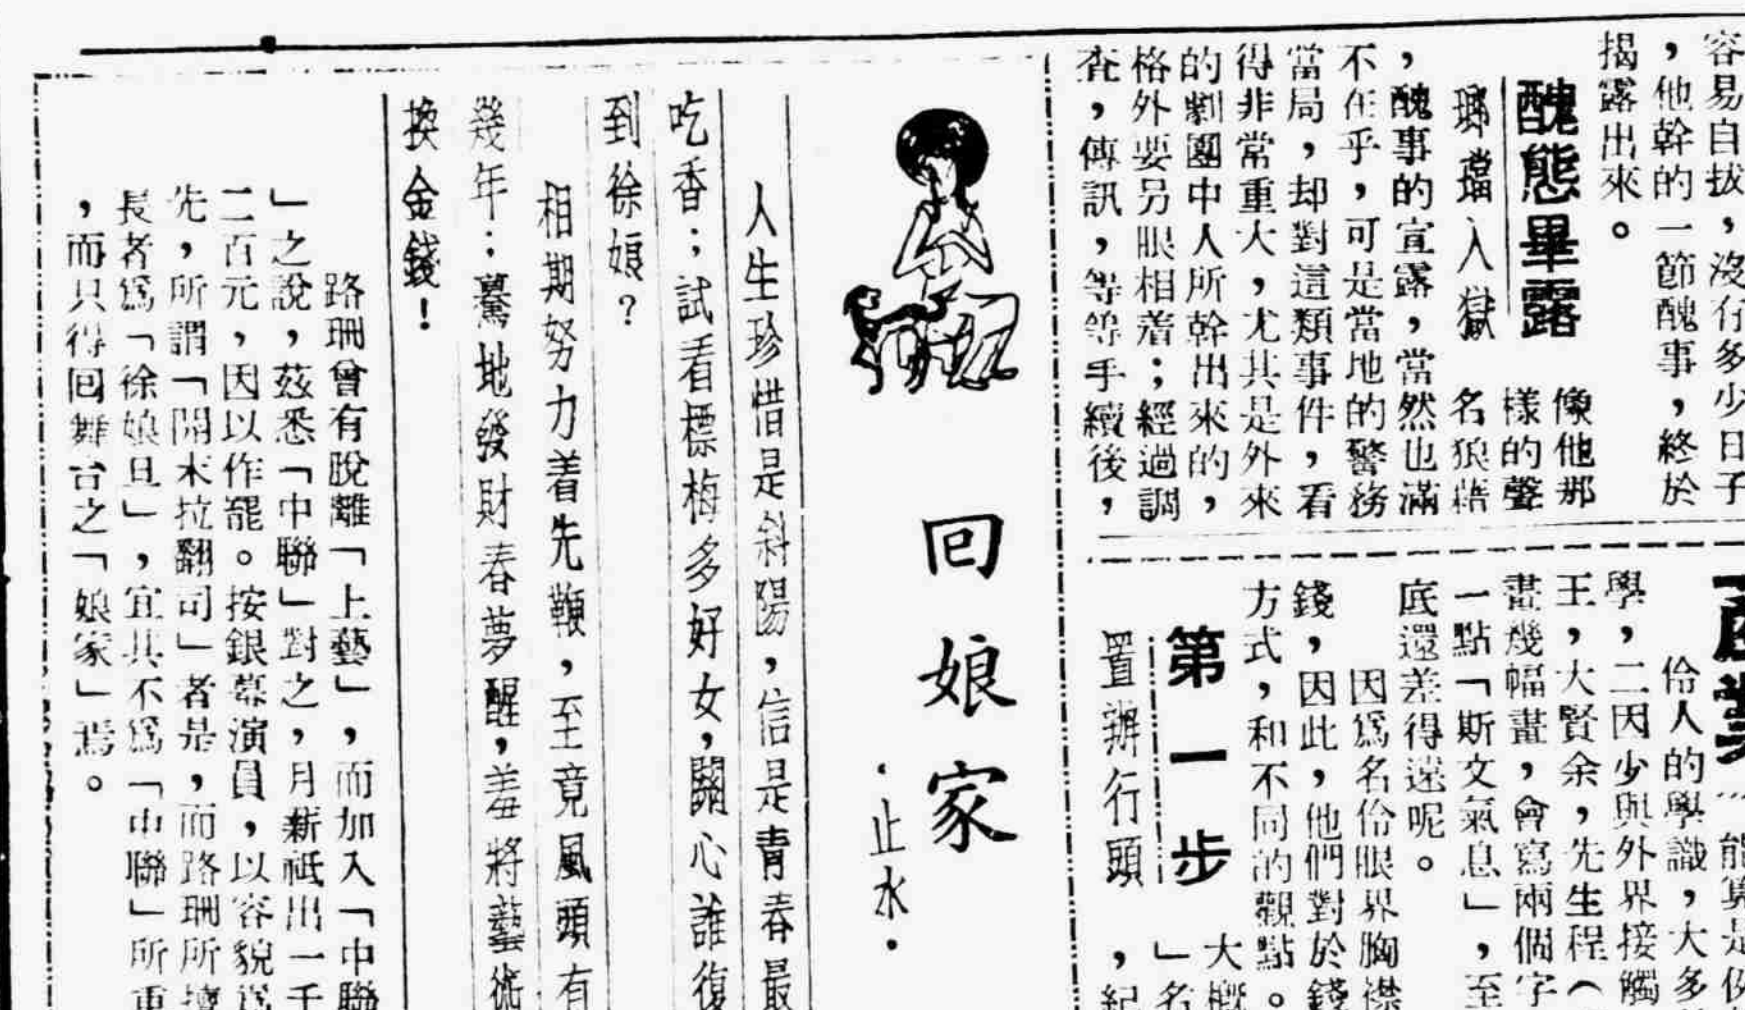 容易自拔，沒有多少日子
，他幹的一節醜事，終於
揭露出來。
醜態畢露
瑯璫入獄
像他那
樣的聲
名狼藉
，醜事的宣露，當然也滿
不在乎，可是當地的警務
當局，却對這類事件，看
得非常重大，尤其是外來
的劇團中人所幹出來的，
格外要另眼相着；經過調
查，傳訊，等等手續後，
能算是
伶人的學識，大多
學，二因少與外界接觸
王，大賢余，先生程（
畫幾幅畫，會寫兩個字
一點「斯文氣息」，至
底還差得遠呢。
因爲名伶眼界胸襟
錢，因此，他們對於錢
方式，和不同的觀點。
第一步
置辦行頭
大概
」名
，紀
回娘家
·止水·
人生珍惜是斜陽，信是青春最
吃香；試看標梅多好女，關心誰復
到徐娘？
相期努力着先鞭，至竟風頭有
幾年；驀地發財春夢醒，羞將藝術
換金錢！
路珊曾有脫離「上藝」，而加入「中聯
」之說，茲悉「中聯」對之，月薪祗出一千
二百元，因以作罷。按銀幕演員，以容貌爲
先，所謂「開末拉翻司」者是，而路珊所擅
長者爲「徐娘旦」，宜其不爲「中聯」所重
，而只得回舞台之「娘家」焉。